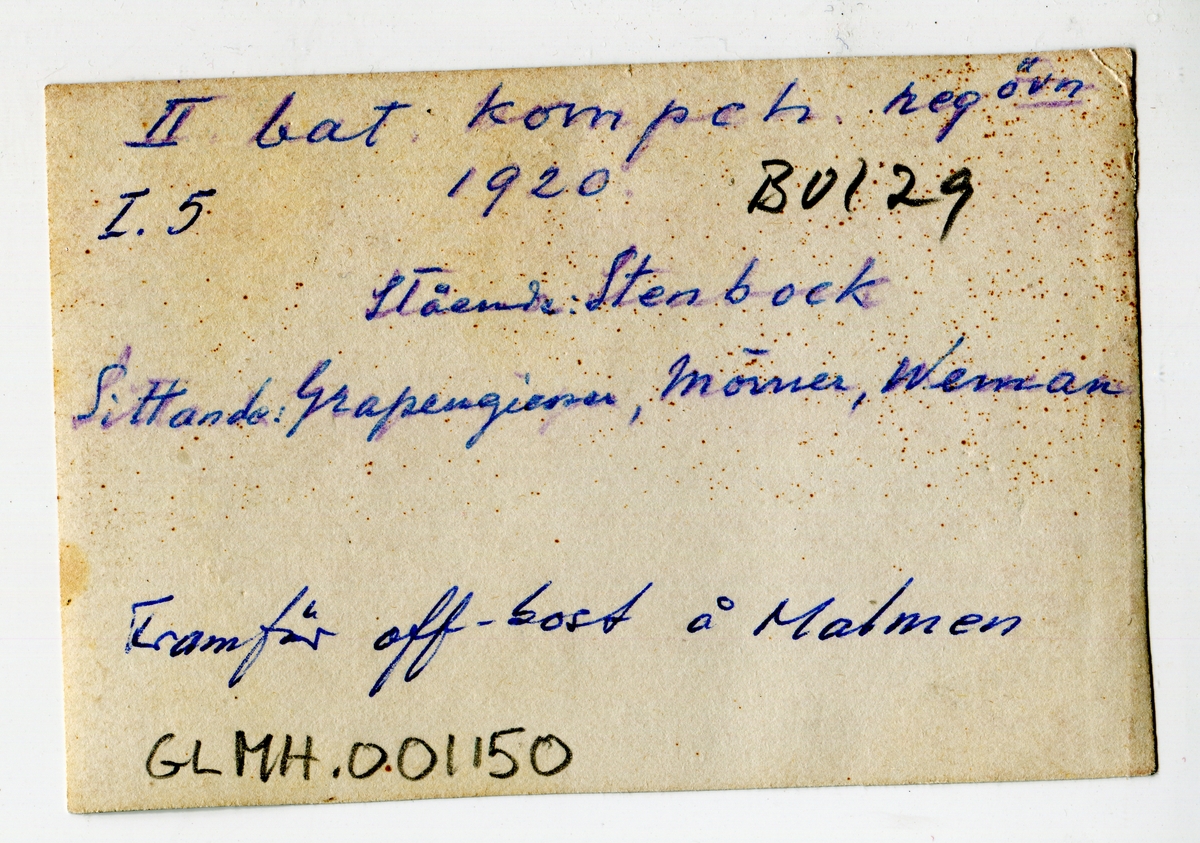 II bat. kompch. reg övn
1920.
I. 5
BV129
Stående: Stenbock
Sittande: Grapengiesser, Mörner, Weman
Framför off-bost å Malmen
GLMH.001150